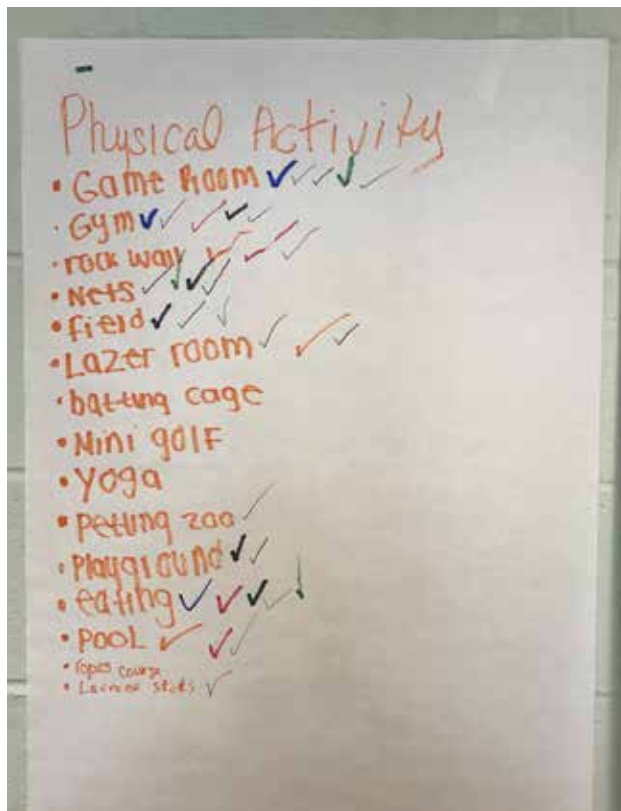 Physical Activity
• Game Room ✓ ✓ ✓ ✓ ✓
• Gym ✓ ✓ ✓ ✓ ✓
• rock wall ✓ ✓ ✓
• Nets ✓ ✓ ✓ ✓
• field ✓ ✓ ✓
• Lazer room ✓ ✓ ✓
• batting cage
• Mini golf
• Yoga
• Petting zoo ✓
• Playground ✓ ✓
• eating ✓ ✓ ✓ ✓ ✓
• POOL ✓ ✓ ✓
• ropes course
• Lacrosse ✓